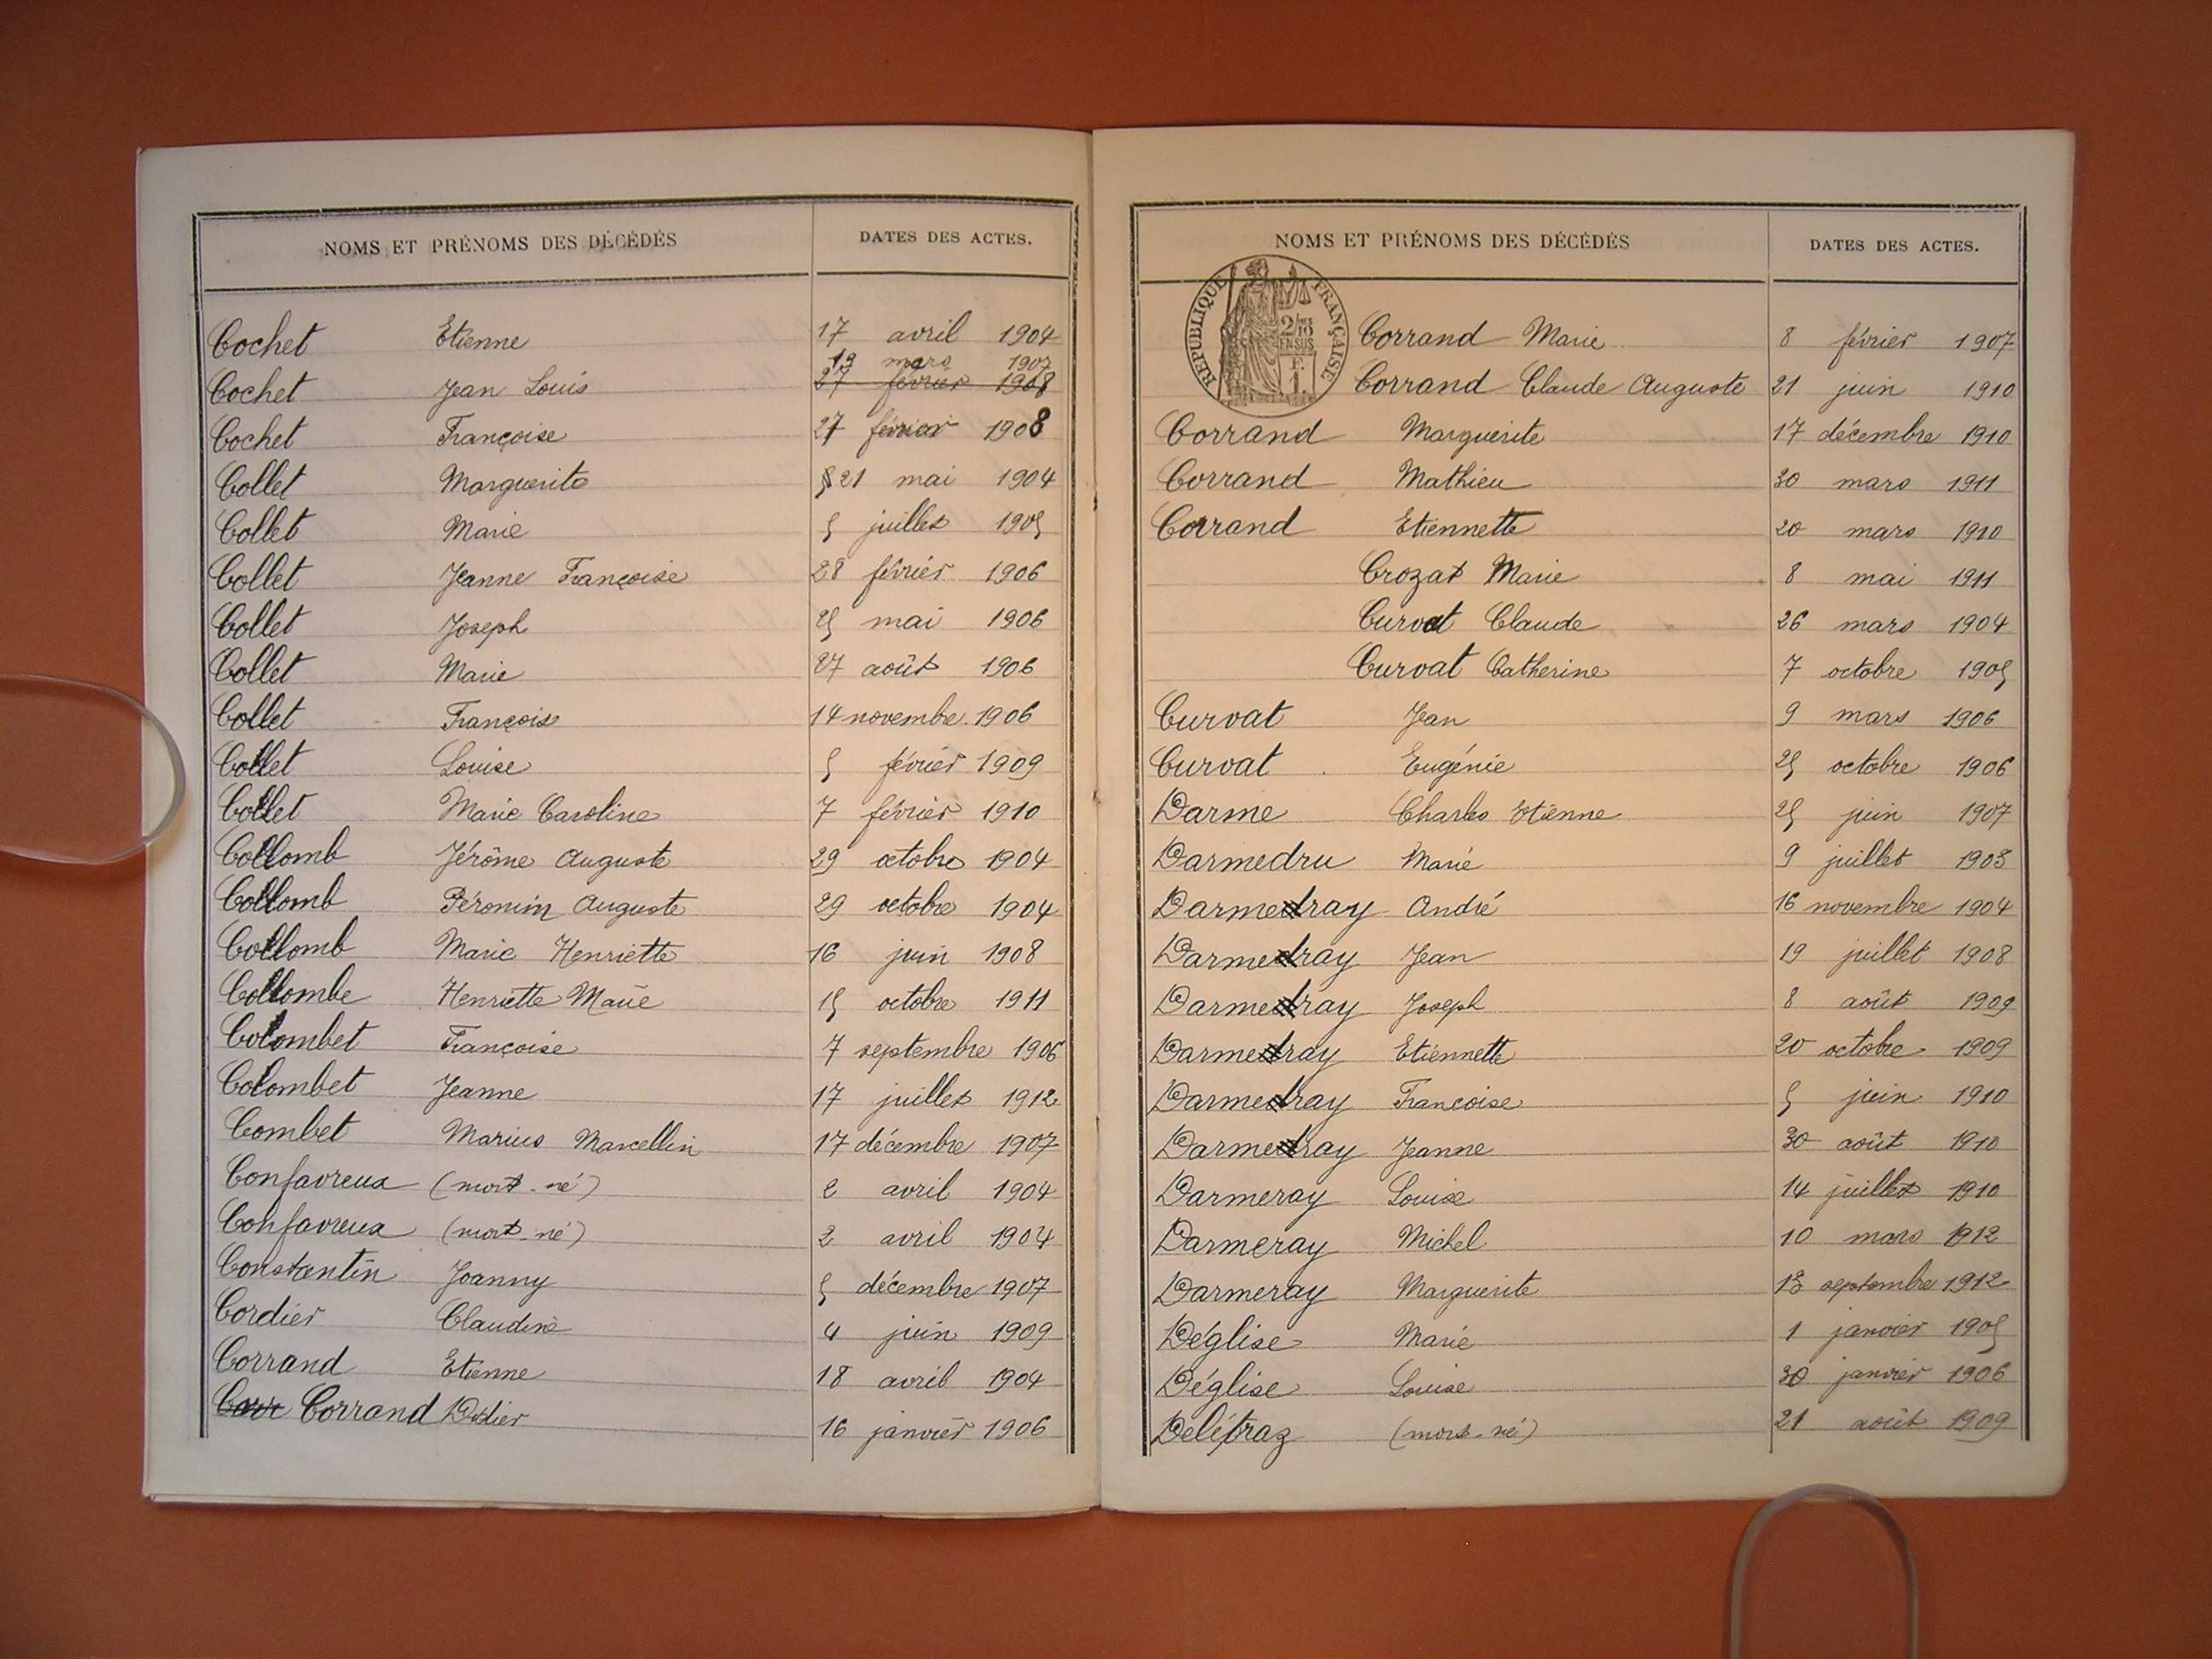 NOMS ET PRÉNOMS DES DÉCÉDÉS DATES DES ACTES.
Cochet Etienne 17 avril 1904
19 mars 1907
Cochet Jean Louis 27 février 1908
Cochet Françoise 27 février 1908
Collet Marguerite 21 mai 1904
Collet Marie 5 juillet 1905
Collet Jeanne Françoise 28 février 1906
Collet Joseph 25 mai 1906
Collet Marie 27 août 1906
Collet François 14 novembre 1906
Collet Louise 5 février 1909
Collet Marie Caroline 7 février 1910
Collomb Jérôme Auguste 29 octobre 1904
Collomb Péronin Auguste 29 octobre 1904
Collomb Marie Henriette 16 juin 1908
Collombe Henriette Marie 15 octobre 1911
Colombet Françoise 7 septembre 1906
Colombet Jeanne 17 juillet 1912
Combet Marius Marcellin 17 décembre 1907
Confavreux (mort-né) 2 avril 1904
Confavreux (mort-né) 2 avril 1904
Constantin Joanny 5 décembre 1907
Cordier Claudine 4 juin 1909
Corrand Etienne 18 avril 1904
Corr Corrand Didier 16 janvier 1906
NOMS ET PRÉNOMS DES DÉCÉDÉS DATES DES ACTES.
REPUBLIQUE FRANÇAISE
2/10
EN SUS
1 F.
Corrand Marie 8 février 1907
Corrand Claude Auguste 21 juin 1910
Corrand Marguerite 17 décembre 1910
Corrand Mathieu 30 mars 1911
Corrand Etiennette 20 mars 1910
Crozat Marie 8 mai 1911
Curvat Claude 26 mars 1904
Curvat Catherine 7 octobre 1905
Curvat Jean 9 mars 1906
Curvat Eugénie 25 octobre 1906
Darme Charles Etienne 25 juin 1907
Darmedru Marie 9 juillet 1903
Darmedray André 16 novembre 1904
Darmedray Jean 19 juillet 1908
Darmedray Joseph 8 août 1909
Darmedray Etiennette 20 octobre 1909
Darmedray Francoise 5 juin 1910
Darmedray Jeanne 30 août 1910
Darmeray Louise 14 juillet 1910
Darmeray Michel 10 mars 1912
Darmeray Marguerite 13 septembre 1912
Déglise Marie 1 janvier 1905
Déglise Louise 30 janvier 1906
Delétraz (mort-né) 21 août 1909